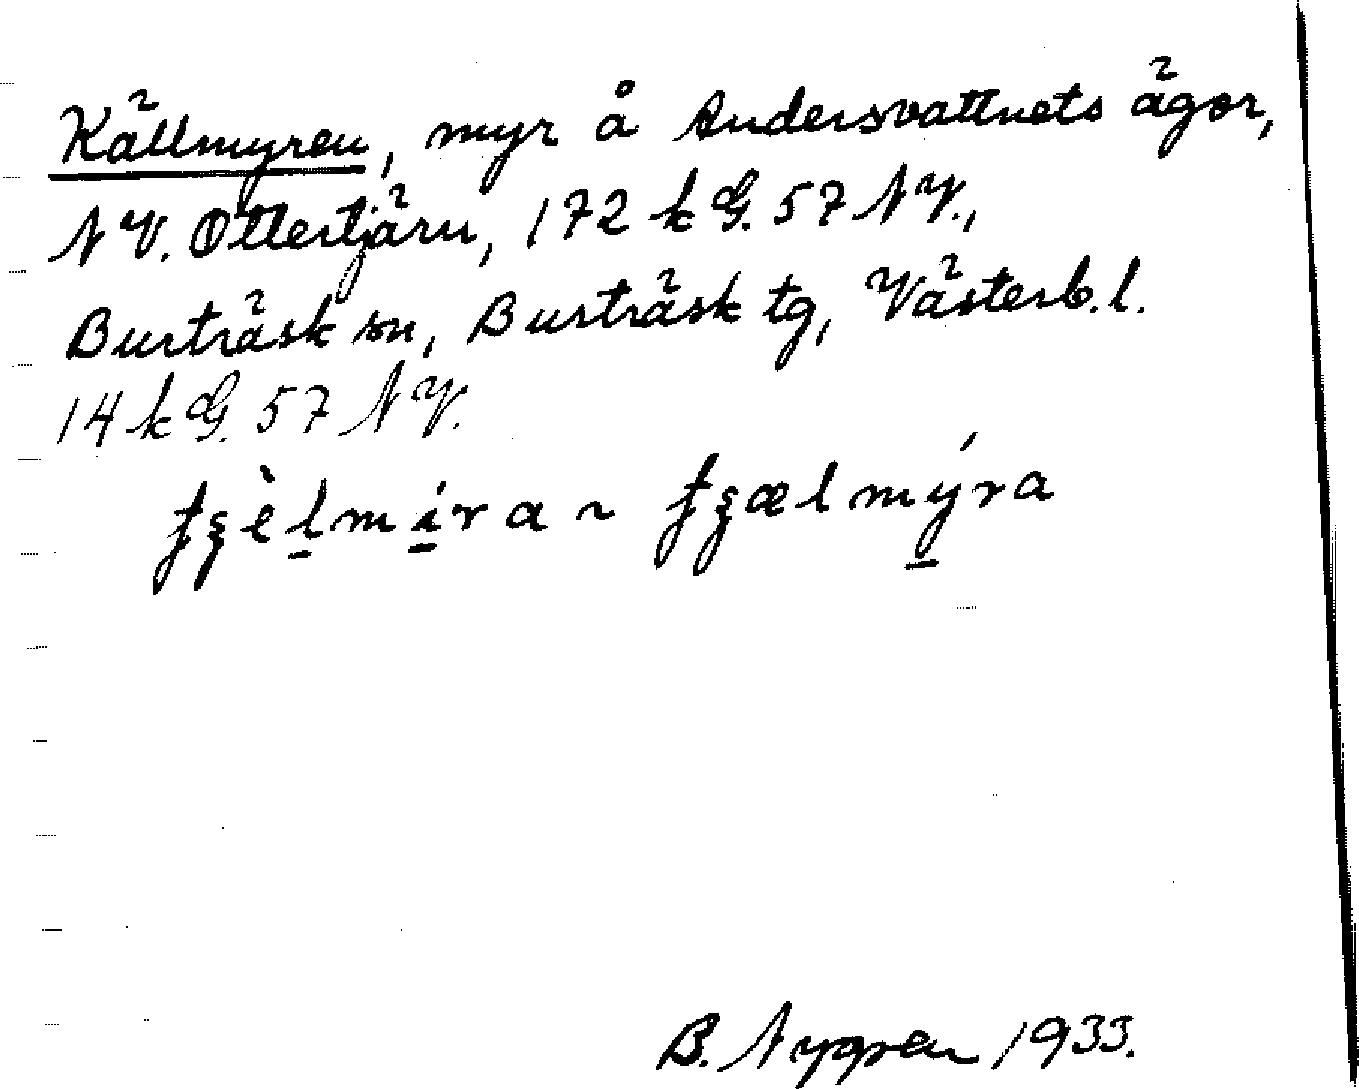 Källmyren, myr å Andersvattnets ägor,
N V. Ottertjärn, 172 k G. 57 N V.,
Burträsk sn, Burträsk tg, Västerb. l.
14 k G. 57 N V.
B. Nygren 1933.